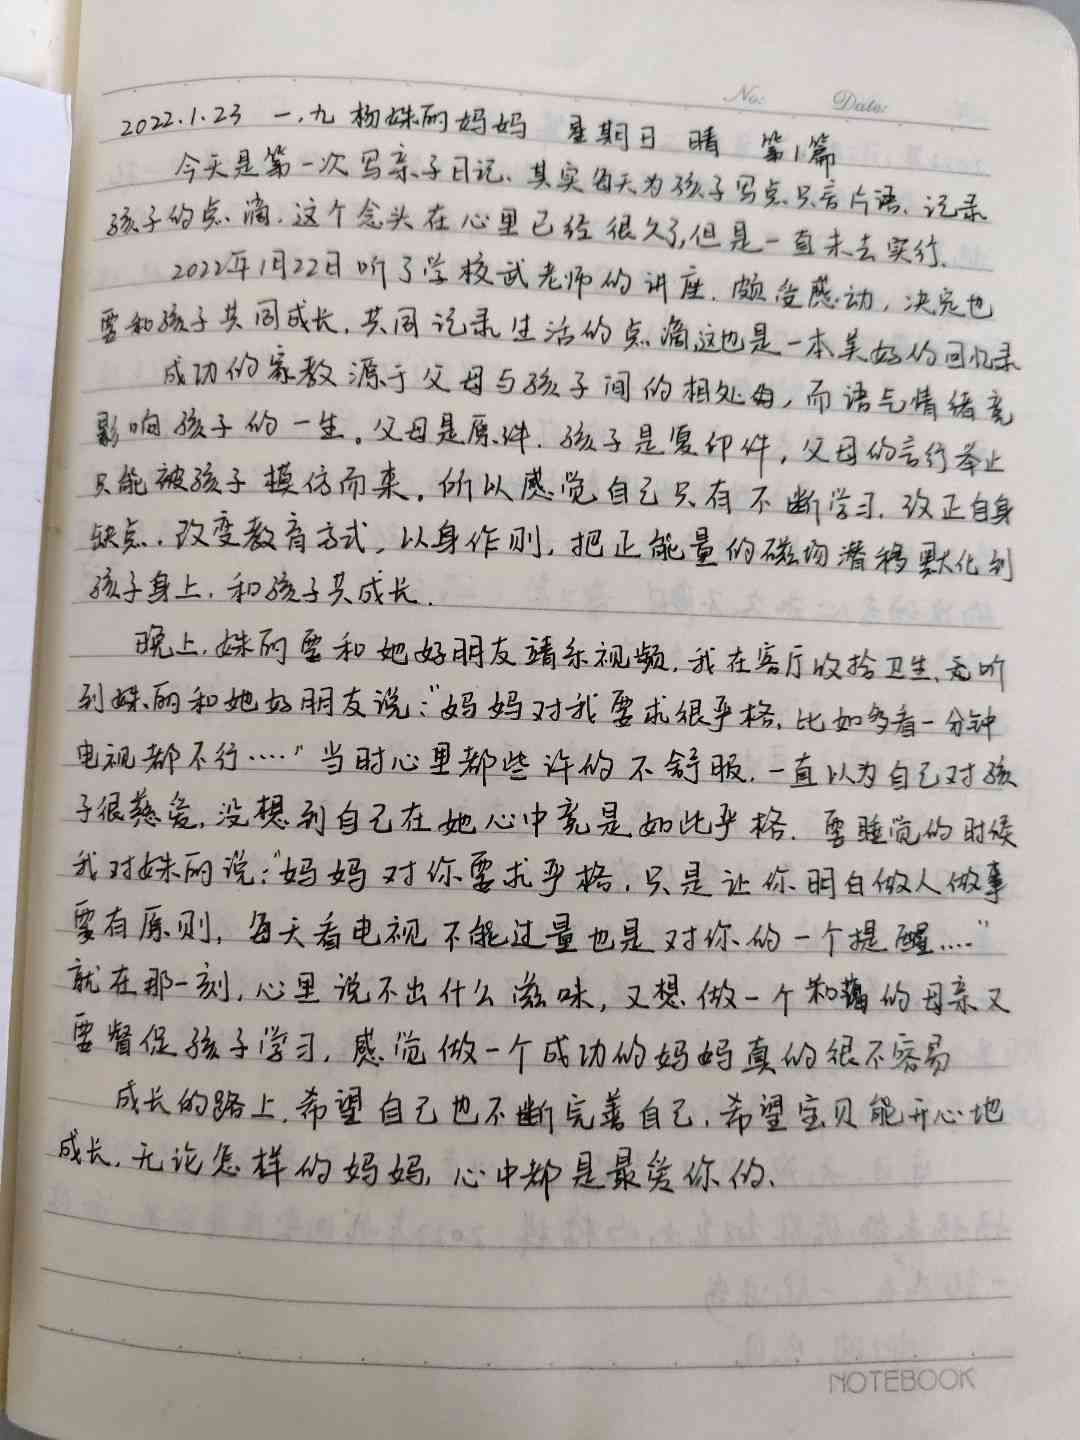 No:   Date:
2022.1.23 一.九 杨姝丽妈妈 星期日 晴 第1篇
今天是第一次写亲子日记、其实每天为孩子写点只言片语、记录
孩子的点滴.这个念头在心里已经很久了,但是一直未去实行.
2022年1月22日听了学校武老师的讲座.颇受感动,决定也
要和孩子共同成长.共同记录生活的点滴,这也是一本美好的回忆录
成功的家教源于父母与孩子间的相处,而语气情绪竟
影响孩子的一生。父母是原件.孩子是复印件,父母的言行举止
只能被孩子模仿而来。所以感觉自己只有不断学习.改正自身
缺点.改变教育方式,以身作则,把正能量的磁场潜移默化到
孩子身上.和孩子共成长.
晚上.姝丽要和她好朋友 视频.我在客厅收拾卫生、无听
到姝丽和她好朋友说:“妈妈对我要求很严格.比如多看一分钟
电视都不行····”当时心里都些许的不舒服.一直以为自己对孩
子很慈爱,没想到自己在她心中竟是如此严格.要睡觉的时候
我对姝丽说:“妈妈对你要求严格.只是让你明白做人做事
要有原则,每天看电视不能过量也是对你的一个提醒....”
就在那一刻,心里说不出什么滋味,又想做一个和蔼的母亲又
要督促孩子学习,感觉做一个成功的妈妈真的很不容易
成长的路上.希望自己也不断完善自己.希望宝贝能开心地
成长.无论怎样的妈妈,心中都是最爱你的、
NOTEBOOK